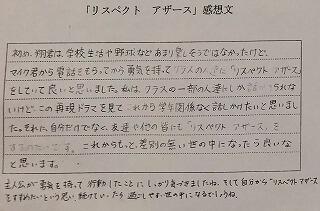 「リスペクト アザース」感想文
初め、翔君は、学校生活や野球などあまり楽しそうではなかったけど、
マイク君から電話をもらってから勇気を持ってクラスの人達に「リスペクト アザース」
をしていて良いと思いました。私は、クラスの一部の人達としか話せられな
いけど、この再現ドラマを見てこれから学年関係なく話しかけたいと思いまし
た。それに、自分だけでなく、友達や他の皆にも「リスペクト アザース」を
するのたいです。これからもっと、差別の無い世の中になったら良いな
と思います。
主人公が勇気を持って行動したことにしっかり気づきましたね。そして自分から"リスペクト アザース
をすすめたいという思い、続けていったら過ごしやすい世の中になるでしょうね。